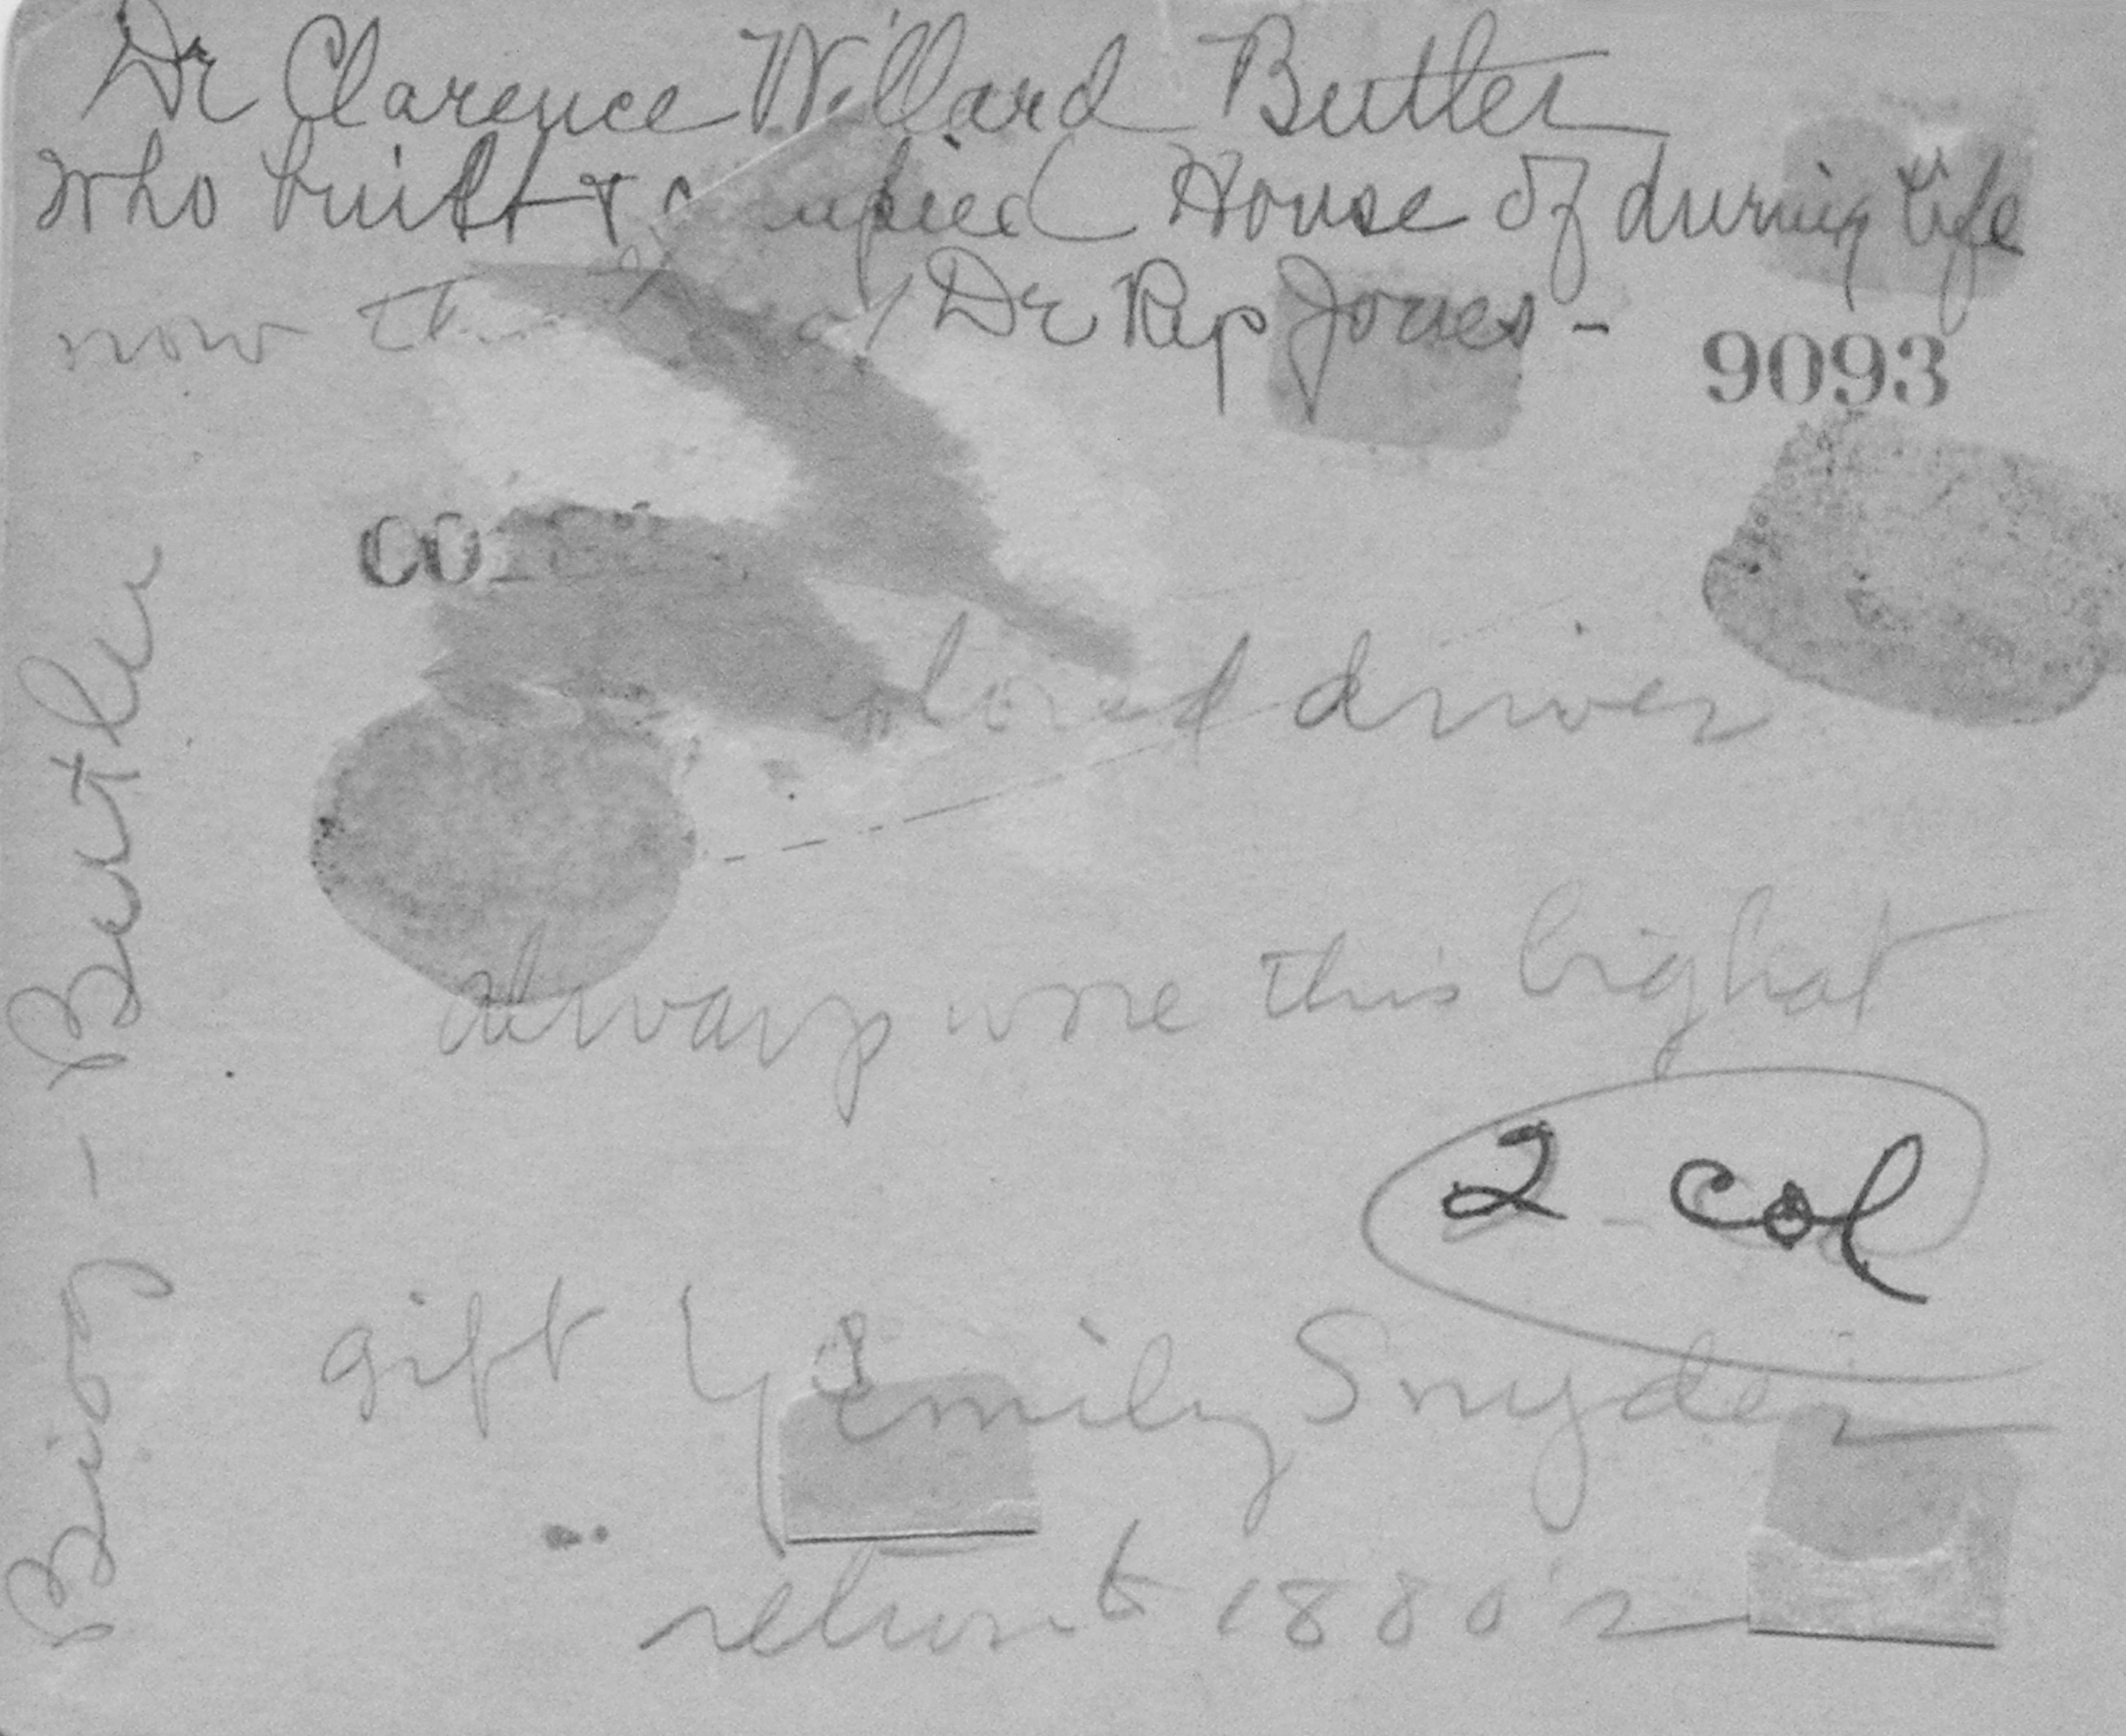 Dr Clarence Willard Butler
who built & occupied House of during life
now Dr Rip Jones -
9093
CO
colored driver
always wore this big hat
2 col
gift by Emily Snyder
1880's
Biog - Butler